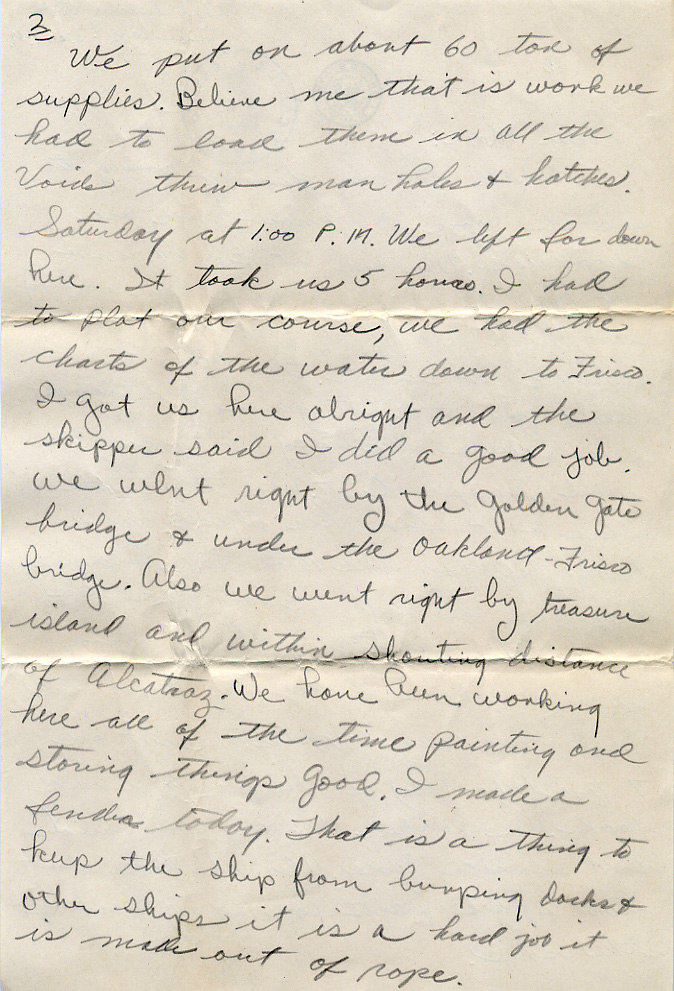 3
We put on about 60 ton of
supplies. Believe me that is work we
had to load them in all the
Voids threw man holes & hatches.
Saturday at 1:00 P.M. We left for down
here. It took us 5 hours. I had
to plot our course, we had the
charts of the water down to Frisco.
I got us here alright and the
skipper said I did a good job.
we went right by the Golden Gate
bridge & under the Oakland-Frisco
bridge. Also we went right by treasure
island and within shouting distance
of Alcatraz. We have been working
here all of the time painting and
storing things Good. I made a
fender today. That is a thing to
keep the ship from bumping docks &
other ships it is a hard job it
is made out of rope.